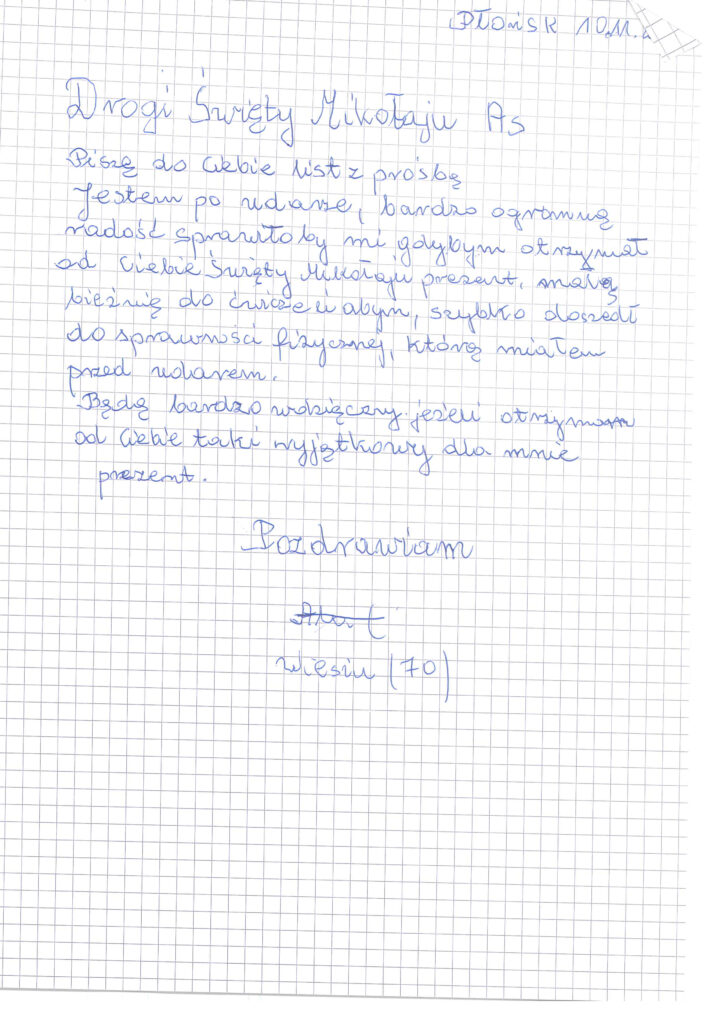 PŁOŃSK 10.11.
Drogi Święty Mikołaju As
Piszę do Ciebie list z prośbą
Jestem po udarze, bardzo ogromną
radość sprawiłoby mi gdybym otrzymał
od Ciebie Święty Mikołaju prezent, małą
bieżnię do ćwiczeń abym, szybko doszedł
do sprawności fizycznej, którą miałem
przed udarem.
Będę bardzo wdzięczny jeżeli otrzymam
od Ciebie taki wyjątkowy dla mnie
prezent.
Pozdrawiam
Wiesiu (70)